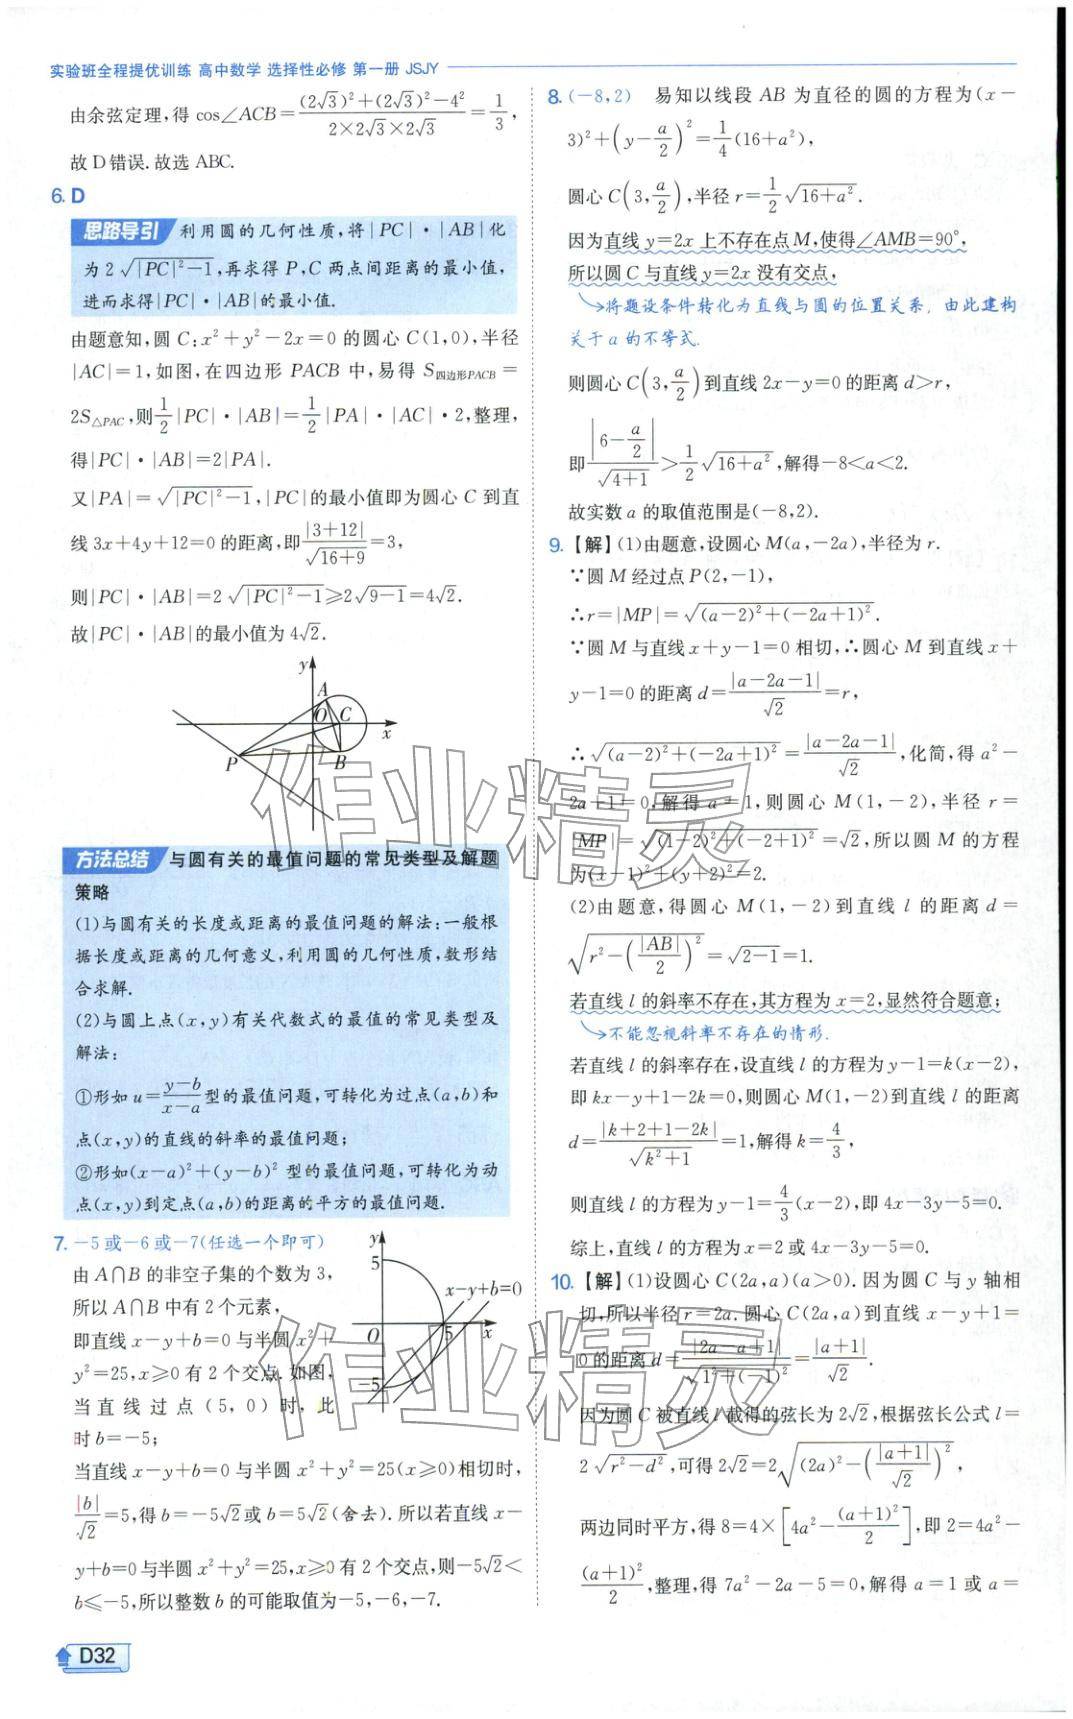 实验班全程提优训练 高中数学 选择性必修 第一册 JSJY
由余弦定理,得 cos∠ACB=((2√3)²+(2√3)²-4²)/(2×2√3×2√3)=1/3,
故 D 错误.故选 ABC.
6. D
思路导引 利用圆的几何性质,将|PC|·|AB|化
为 2√(|PC|²-1),再求得 P,C 两点间距离的最小值,
进而求得|PC|·|AB|的最小值.
由题意知,圆 C:x²+y²-2x=0 的圆心 C(1,0),半径
|AC|=1,如图,在四边形 PACB 中,易得 S四边形PACB=
2S△PAC,则1/2|PC|·|AB|=1/2|PA|·|AC|·2,整理,
得|PC|·|AB|=2|PA|.
又|PA|=√(|PC|²-1),|PC|的最小值即为圆心 C 到直
线 3x+4y+12=0 的距离,即|3+12|/√(16+9)=3,
则|PC|·|AB|=2√(|PC|²-1)≥2√(9-1)=4√2.
故|PC|·|AB|的最小值为 4√2.
y
A
O C
x
P
B
方法总结 与圆有关的最值问题的常见类型及解题
策略
(1)与圆有关的长度或距离的最值问题的解法:一般根
据长度或距离的几何意义,利用圆的几何性质,数形结
合求解.
(2)与圆上点(x,y)有关代数式的最值的常见类型及
解法:
①形如 u=(y-b)/(x-a)型的最值问题,可转化为过点(a,b)和
点(x,y)的直线的斜率的最值问题;
②形如(x-a)²+(y-b)² 型的最值问题,可转化为动
点(x,y)到定点(a,b)的距离的平方的最值问题.
7. -5 或-6 或-7(任选一个即可)
由 A∩B 的非空子集的个数为 3,
所以 A∩B 中有 2 个元素,
即直线 x-y+b=0 与半圆 x²+
y²=25,x≥0 有 2 个交点.如图,
当直线过点(5,0)时,此
时 b=-5;
y
5
x-y+b=0
O
5
x
-5
当直线 x-y+b=0 与半圆 x²+y²=25(x≥0)相切时,
|b|/√2=5,得 b=-5√2或 b=5√2(舍去).所以若直线 x-
y+b=0 与半圆 x²+y²=25,x≥0 有 2 个交点,则-5√2<
b≤-5,所以整数 b 的可能取值为-5,-6,-7.
D32
8. (-8,2) 易知以线段 AB 为直径的圆的方程为(x-
3)²+(y-a/2)²=1/4(16+a²),
圆心 C(3,a/2),半径 r=1/2√(16+a²).
因为直线 y=2x 上不存在点 M,使得∠AMB=90°,
所以圆 C 与直线 y=2x 没有交点,
将题设条件转化为直线与圆的位置关系,由此建构
关于 a 的不等式.
则圆心 C(3,a/2)到直线 2x-y=0 的距离 d>r,
即|6-a/2|/√(4+1)>1/2√(16+a²),解得-8<a<2.
故实数 a 的取值范围是(-8,2).
9. 【解】(1)由题意,设圆心 M(a,-2a),半径为 r.
∵圆 M 经过点 P(2,-1),
∴r=|MP|=√((a-2)²+(-2a+1)²).
∵圆 M 与直线 x+y-1=0 相切,∴圆心 M 到直线 x+
y-1=0 的距离 d=|a-2a-1|/√2=r,
∴√((a-2)²+(-2a+1)²)=|a-2a-1|/√2,化简,得 a²-
2a+1=0,解得 a=1,则圆心 M(1,-2),半径 r=
|MP|=√((1-2)²+(-2+1)²)=√2,所以圆 M 的方程
为(x-1)²+(y+2)²=2.
(2)由题意,得圆心 M(1,-2)到直线 l 的距离 d=
√(r²-(|AB|/2)²)=√(2-1)=1.
若直线 l 的斜率不存在,其方程为 x=2,显然符合题意;
不能忽视斜率不存在的情形.
若直线 l 的斜率存在,设直线 l 的方程为 y-1=k(x-2),
即 kx-y+1-2k=0,则圆心 M(1,-2)到直线 l 的距离
d=|k+2+1-2k|/√(k²+1)=1,解得 k=4/3,
则直线 l 的方程为 y-1=4/3(x-2),即 4x-3y-5=0.
综上,直线 l 的方程为 x=2 或 4x-3y-5=0.
10. 【解】(1)设圆心 C(2a,a)(a>0).因为圆 C 与 y 轴相
切,所以半径 r=2a.圆心 C(2a,a)到直线 x-y+1=
0 的距离 d=|2a-a+1|/√(1²+(-1)²)=|a+1|/√2.
因为圆 C 被直线 l 截得的弦长为 2√2,根据弦长公式 l=
2√(r²-d²),可得 2√2=2√((2a)²-(|a+1|/√2)²),
两边同时平方,得 8=4×[4a²-(a+1)²/2],即 2=4a²-
(a+1)²/2,整理,得 7a²-2a-5=0,解得 a=1 或 a=
作业精灵
作业精灵